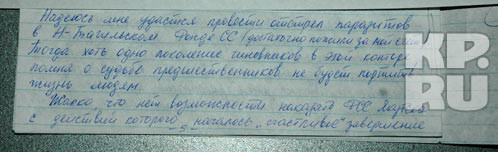 Надеюсь мне удастся провести отстрел паразитов
в Н-Тагильском Фонде СС (достаточно пожили за мой счёт)
Тогда хоть одно поколение чиновников в этой конторе
помня о судьбе предшественников не будет портить
жизнь людям.
Жалко, что нет возможности наказать
с действий которого началось "счастливое" завершение
KP.
RU